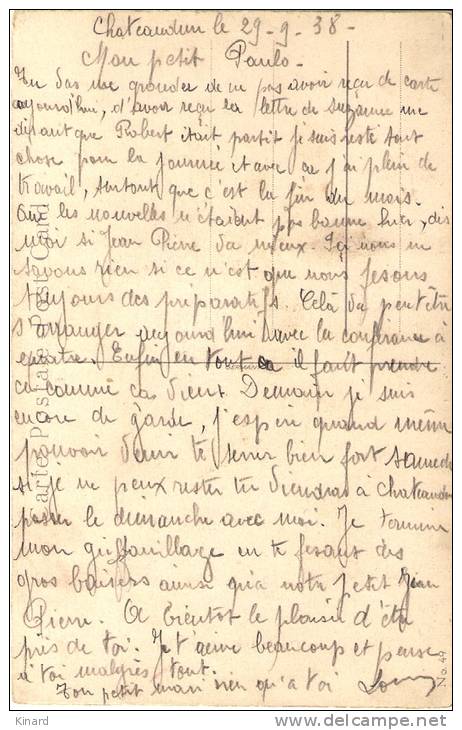 Chateaudun le 29-9-38-
Mon petit Paulo-
Tu vas me gronder de ne pas avoir reçu de carte
aujourd'hui, d'avoir reçu la lettre de Suzanne me
disant que Robert était partit je suis resté tout
chose pour la journée et avec ca j'ai plein de
travail, surtout que c'est la fin du mois.
Que les nouvelles n'étaient pas bonne hier, dis
moi si Jean Pierre va mieux. Ici nous ne
savons rien si ce n'est que nous fesons
toujours des préparatifs. Celà va peut être
s'arranger aujourd'hui avec la conférence à
quatre. Enfin en tout ca il fault prendre
ca comme ca vient. Demain je suis
encore de garde, j'espère quand même
pouvoir venir te serrer bien fort samedi
si je ne peux rester tu viendras à Chateaudun
passer le dimanche avec moi. Je termine
mon griffouillage en te fesant des
gros baisers ainsi qu'a notre petit Jean
Pierre. A bientot le plaisir d'être
près de toi. Je t'aime beaucoup et pense
a toi malgrès tout.
Ton petit mari rien qu'a toi
Carte Postale Post Card
No. 49
Kinard
delcampe.net